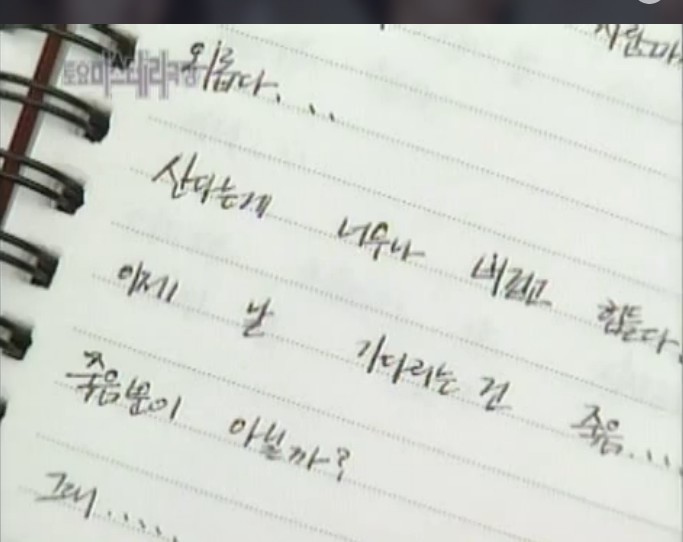 외롭다...
토요미스테리극장
산다는게 너무나 버겁고 힘들다.
이제 날 기다리는 건 죽음....
죽음뿐이 아닐까?
그래.....